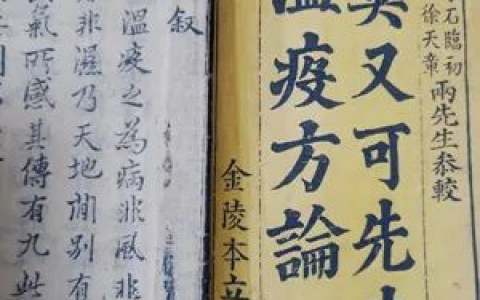 石臨初
徐天章
兩先生叅較
吳又可先
溫疫方論
金陵本立
叙
溫疫之為病非風非
非濕乃天地間別有
氣所感其傳有九此